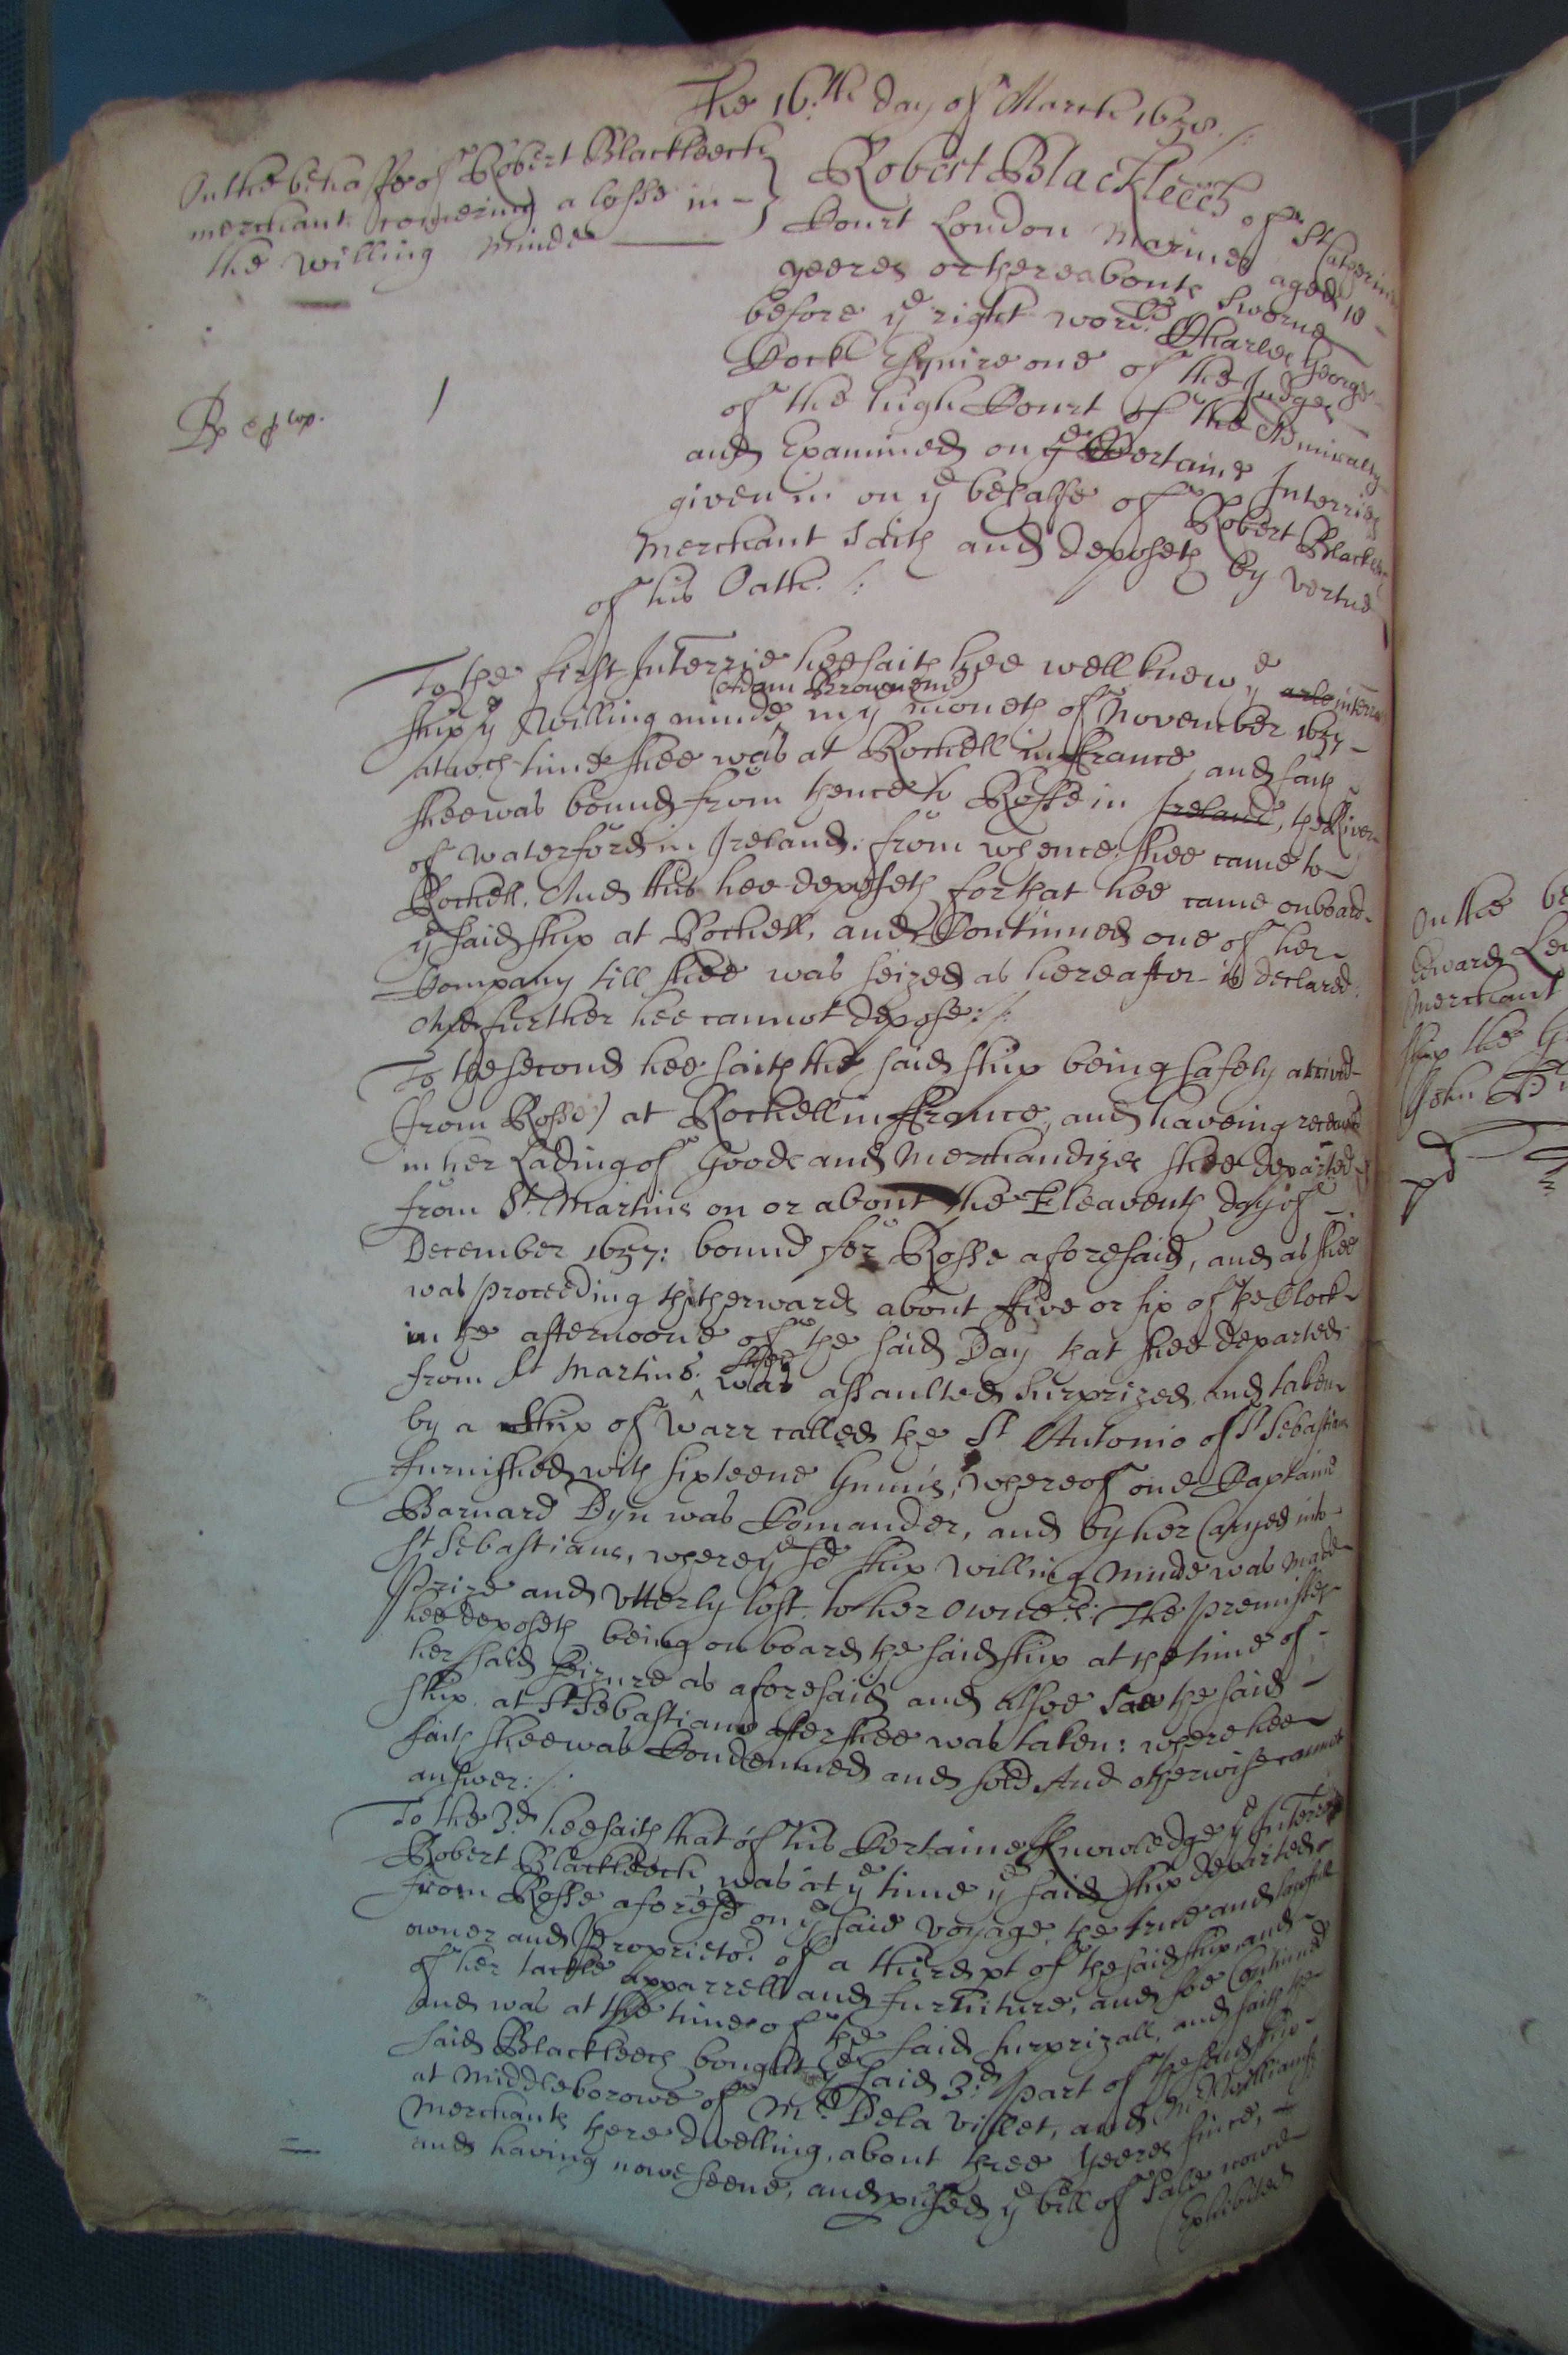 The 16:th day of March 1658./:
On the behalfe of Robert Blackleech
merchant touching a losse in -
the Willing minde
Rp
1
Robert Blackleech of St Catherins
Court London Mariner aged 18 -
yeeres or thereabouts sworne
before ye right worll. Charles George
Cock Esquire one of the Judges
of the high Court of the Admiralty
and Examined on ye Certaine Interries
given in on ye behalfe of Robert Blackleech
Merchant saith and deposeth by vertue
of his Oath. /:
To the first Interrie hee saith hee well knew ye arlte interrate
ship ye Willing minde (Adam Browne mr) in ye moneth of November 1657 -
at wch time shee was at Rochell in ffrance, and saith
shee was bound from thence to Rosse in Ireland, the River
of Waterford in Ireland. from whence shee came to
Rochell. And this hee deposeth for that hee came onboard
ye said ship at Rochell, and Continued one of her
Company till shee was seized as hereafter is declared.
And further hee cannot depose:/:
To the second hee saith the said ship being safely arrived
(from Rosse) at Rochell in ffrance, and haveing received
in her Lading of Goods and Merchandizes shee departed
from St. Martins on or about the Eleaventh day of -
December 1657: bound for Rosse aforesaid, and as shee
was proceeding thitherwards about ffive or six of the Clock
in the afternoone of the said Day that shee departed
from St Martins. shee was assaulted surprized and taken
by a Ship of Warr called the St Antonio of St Sebastians
furnished with sixteene Gunns, whereof one Captaine
Barnard Dyn was Comander, and by her Caryed into
St Sebastians, where ye sd ship Willing minde was made
Prize and vtterly lost to her Owners: The premisses
hee deposeth being on board the said ship at the time of -
her said seizure as aforesaid and alsoe saw the said -
ship at St Sebastians after shee was taken: where hee
saith shee was Condemned and sold And otherwise cannot
answer:/:
To the 3d. hee saith that of his Certaine Knowledge ye Interrate
Robert Blackleech, was at ye time ye said ship departed
from Rosse aforesd on ye said voyage, the true and lawfull
owner and Proprietor of a third pt of the said ship and
of her tackle apparrell and furniture, and soe Continued
and was at the time of the said surprizall, and saith the
said Blackleech bought ye said 3:d part of the said ship
at Middleborowe of Mr. Dela Villet, and Mr Williams
Merchants there dwelling, about three yeeres since, -
and having nowe seene, and pused ye bill of Sale nowe
Exhibited
On the be
Edward Le
Merchant
ship the G
John